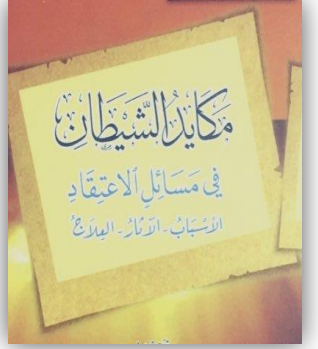 مَكَايِدُ الشَّيْطَانِ
فِي مَسَائِلِ الِاعْتِقَادِ
الأَسْبَابُ - الآثَارُ - العِلَاجُ